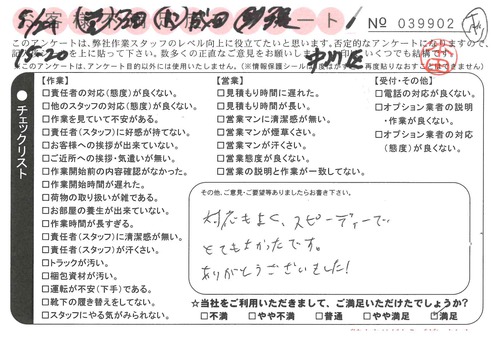 ート
№ 039902
このアンケートは、弊社作業スタッフのレベル向上に役立てたいと思います。否定的なアンケートになりますので、
中川区
【作業】
□責任者の対応(態度)が良くない。
□他のスタッフの対応(態度)が良くない。
□作業を見ていて不安がある。
□責任者(スタッフ)に好感が持てない。
□お客様への挨拶が出来ていない。
□ご近所への挨拶・気遣いが無い。
□作業開始前の内容確認がなかった。
□作業開始時間が遅れた。
□荷物の取り扱いが雑である。
□お部屋の養生が出来ていない。
□作業時間が長すぎる。
□責任者(スタッフ)に清潔感が無い。
□責任者(スタッフ)が汗くさい。
□トラックが汚い。
□梱包資材が汚い。
□運転が不安(下手)である。
□靴下の履き替えをしてない。
□スタッフにやる気がみられない。
【営業】
□見積もり時間に遅れた。
□見積もり時間が長い。
□営業マンに清潔感が無い。
□営業マンが煙草くさい。
□営業マンが汗くさい。
□営業態度が良くない。
□営業の説明と作業が一致してない。
【受付・その他】
□電話の対応が良くない。
□オプション業者の説明
・作業が良くない。
□オプション業者の対応
(態度)が良くない。
●チェックリスト
その他、ご意見・ご要望等ありましたらお書き下さい。
対応もよく、スピーディーで
とてもよかったです。
ありがとうございました!
☆当社をご利用いただきまして、ご満足いただけたでしょうか?
□不満 □やや不満 □普通 □やや満足 □満足